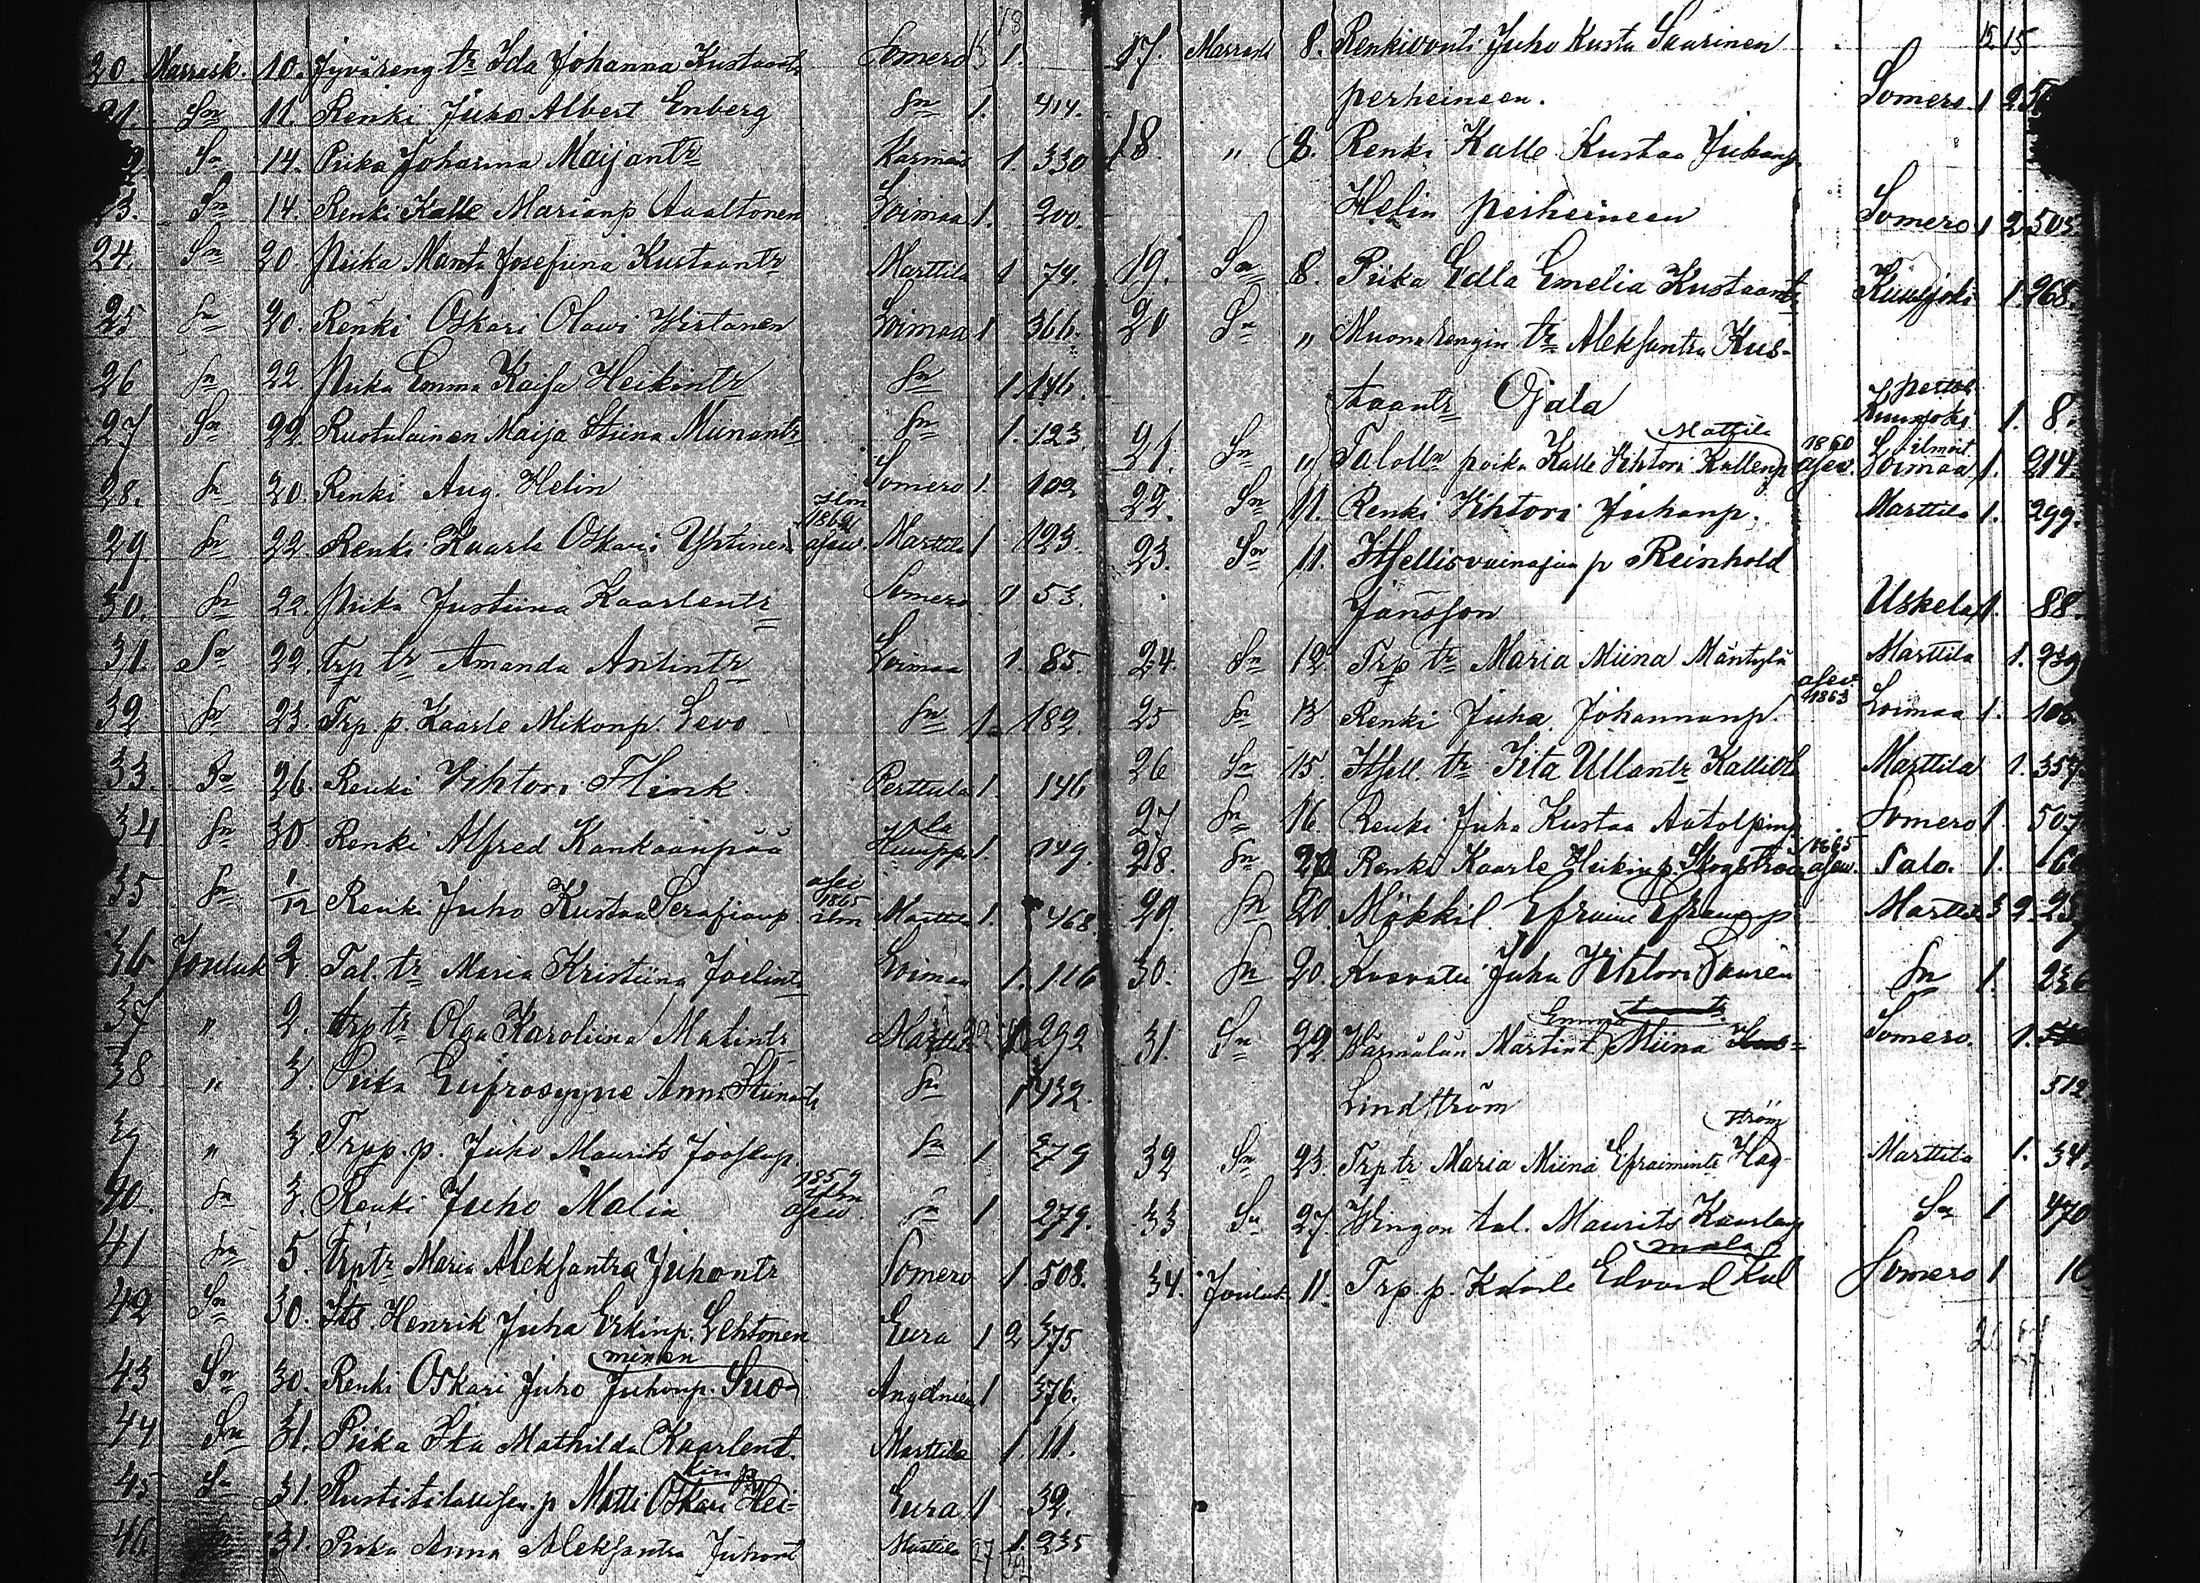 13
20. Marrask. 10. Jyväreng tr Ida Johanna Kustaantr Somero 1.
21 Sn 11. Renki Juho Albert Enberg Sn 1. 414.
Sn 14. Piika Johanna Maijantr 1. 330
23. Sn 14. Renki Kalle Marianp Aaltonen Loimaa 1. 200.
24. Sn 20 Piika Manta Josefiina Kustaantr Marttila 1 74.
25 Sn 20. Renki Oskari Olawi Wirtanen Loimaa 1 366.
26 Sn 22 Piika Emma Kaisa Heikintr Sn 1. 146.
27 Sn 22. Ruotulainen Maija Stiina Sn 1. 123
28. Sn 20. Renki Aug. Helin Somero 1. 102
ilm
29 Sn 22. Renki Kaarle Oskari asew. Marttila 1 123.
30. Sn 22. Piika Justiina Kaarlentr Somero 1 53.
31. Sn 22. Trp tr Amanda Antintr Loimaa 1. 85.
32 Sn 23. Trp. p. Kaarle Mikonp. Levo Sn 1. 182.
33. Sn 26. Renki Wihtori Flink Perttula 1. 146
la
34 Sn 30. Renki Alfred Kankaanpää 1. 149.
1865
35 Sn 1/12 Renki Juho Kustaa Serafianp ilm Marttila 1. 468.
36 Jouluk 2 Tal. tr Maria Kristiina Joelintr Loimaa 1. 116
37 " 2. trp tr Olga Karoliina Matintr Marttila 292
38 " 3. Piika Eufrosyyne Anna Stiinantr Sn 1 432.
39 " 3 Trpp. p. Juho Maurits Joosepp. Sn 1 279
1859
ilm
40. Sn 3. Renki Juho Malin asew. Sn 1 279.
41 Sn 5. trp tr Maria Aleksantra Juhontr Somero 1. 508.
42 Sn 30. Its. Henrik Juha Erkinp. Lehtonen Eura 1 2 375
minen
43 Sn 30. Renki Oskari Juho Juhonp. Suo- 1 376.
44 Sn 31. Piika Ita Mathilda Kaarlent. Marttila 1. 11.
kinp
45 Sn 31. Rustitilallisen. p Matti Oskari Hei- Eura 1 32.
46 31. Piika Anna Aleksantra Juhont Marttila 1. 235
27
12 15
17. Marrask 8. Renkivouti Juho Kusta Saarinen
perheineen. Somero 1 2
18. " 8. Renki Kalle Kustaa Juhanp
Helin perheineen Somero 1 2 503.
19. Sn 8. Piika Edla Emelia Kustaantr Kuusjoki 1. 268.
20 Sn " Muonarengin tr Aleksantra Kus-
taantr Ojala Kuusjoki 1. 8.
Mattila
1860 ilmoit
21. Sn " Talolln poika Kalle Wihtori Kallenp asew. Loimaa 1. 214.
22. Sn 11. Renki Wihtori Juhanp. Marttila 1. 299.
23. Sn 11. Itsellisvaimosiin p Reinhold
Jansson Uskela 1. 88.
24. Sn 12. Trp tr Maria Miina Mäntylä Marttila 1. 239
asew.
1863
25 Sn 13 Renki Juha Johannanp. Loimaa 1. 106
26 Sn 15. Itsell. tr Iita Ullantr Kalliola Marttila 1. 357.
27 Sn 16. Renki Juha Kustaa Aatolfinp Somero 1. 507
1865
28. Sn 20 Renki Kaarle Heikinp. asew. Salo. 1.
29. Sn 20. Mökkil. Efraim Efraimp Marttila 3 2.
30. Sn 20. Juha Wihtori Sn 1. 236
Emma
31. Sn 22 Martint Miina Somero. 1.
512
Lindström
ström
32 Sn 23. Trp tr Maria Miina Efraimintr Hag- Marttila 1. 34.
33 Sn 27. tal. Maurits Kaarlenp Sn 1 470
mala
34. Jouluk 11. Trp. p. Kaarle Edvard Kul Somero 1